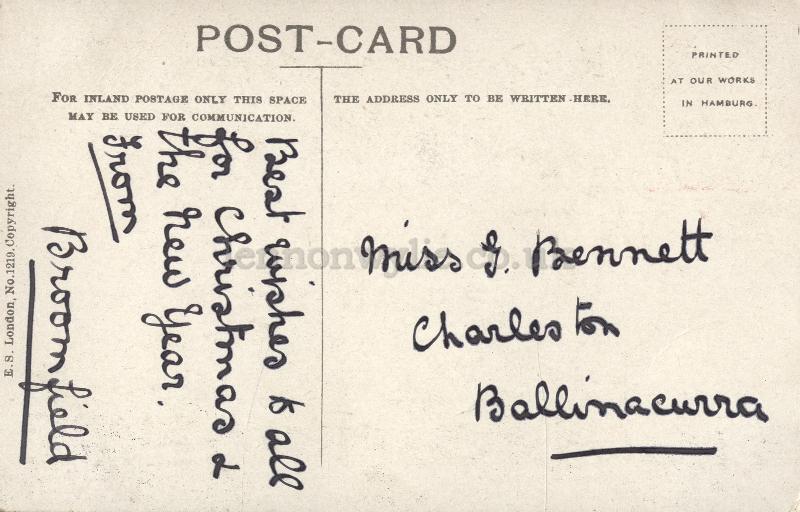 POST-CARD
FOR INLAND POSTAGE ONLY THIS SPACE
MAY BE USED FOR COMMUNICATION.
THE ADDRESS ONLY TO BE WRITTEN HERE.
PRINTED
AT OUR WORKS
IN HAMBURG.
E. S. London, No. 1219. Copyright.
Best wishes to all
for Christmas &
the New Year.
From
Broomfield
Miss G. Bennett
Charleston
Ballinacurra